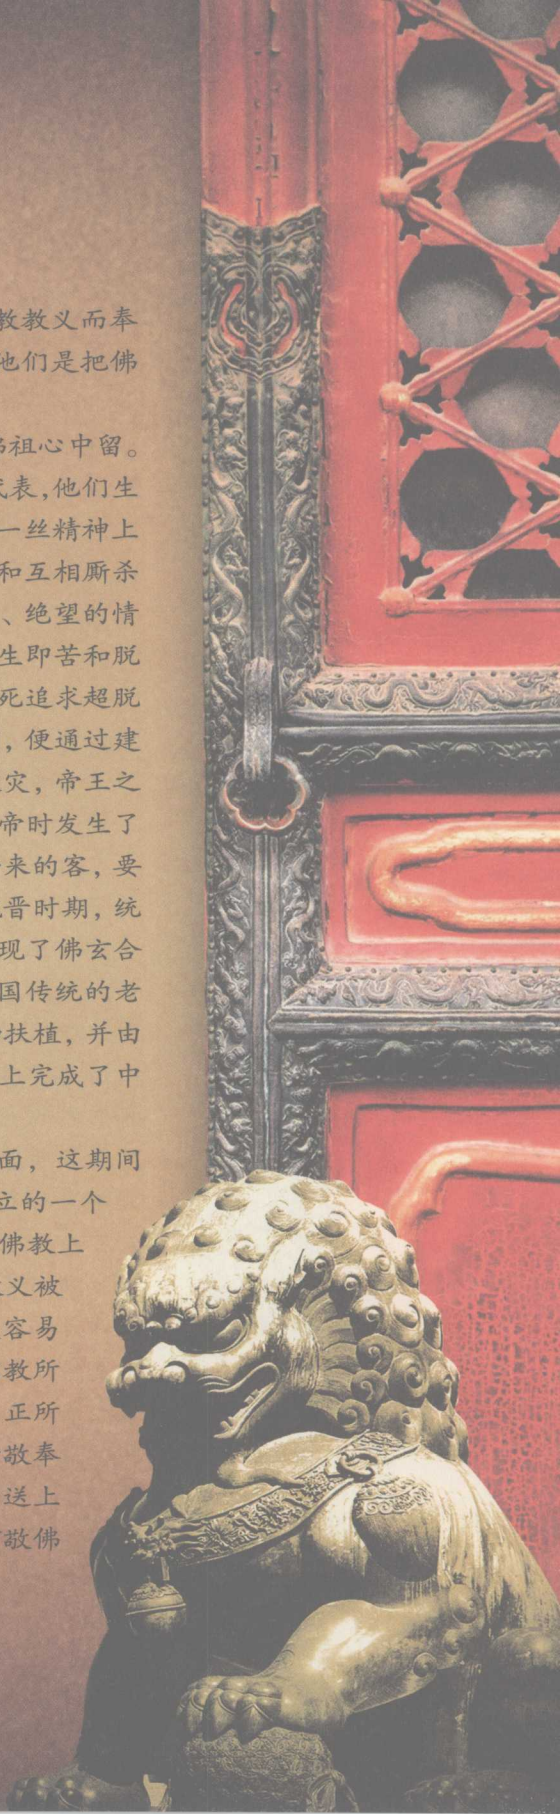 教教义而奉
他们是把佛
祖心中留。
表,他们生
一丝精神上
和互相厮杀
、绝望的情
生即苦和脱
死追求超脱
，便通过建
灾，帝王之
帝时发生了
来的客，要
晋时期，统
现了佛玄合
国传统的老
扶植，并由
上完成了中
面，这期间
立的一个
佛教上
义被
容易
教所
正所
敬奉
送上
敬佛